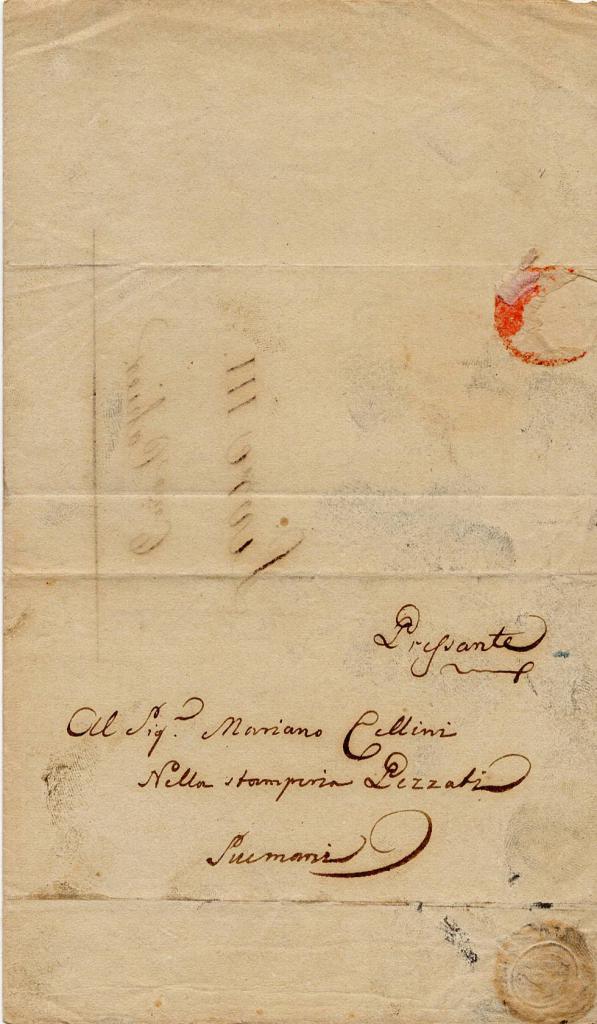 Pressante
Al Sig.r Mariano Cellini
Nella stamperia Pezzati
Suemani